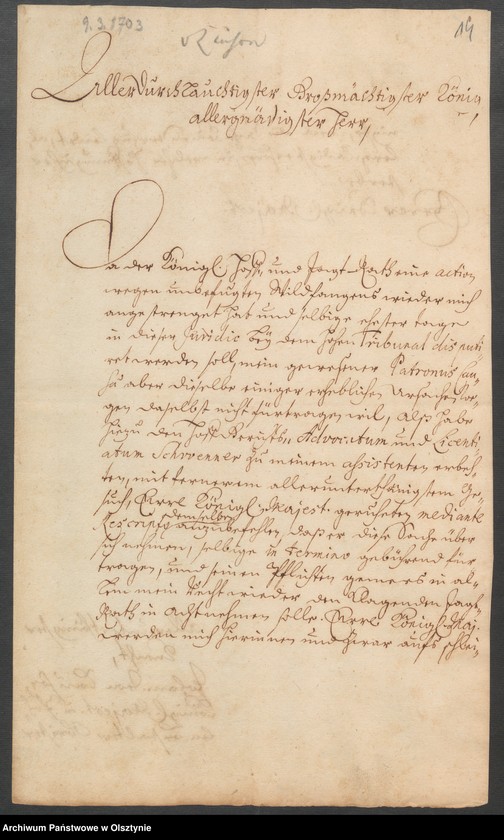 9.3.1703
19
AllerDurchlauchtigster Großmächtigster König
allergnädigster Herr,
Da der Königl. Hoff- und Jagt-Rath eine action
wegen unbefugten Wildfangens wieder mich
angestrenget hat und selbige ehester tage
in dieser Juridic bey dem hohen Tribunal disputi
ret werden soll, mein gewesener Patronus
aber dieselbe einiger erheblichen Ursachen
gen daselbst nicht fürtragen wil, Alß habe
hiezu den Hoff-Gerichts-Advocatum und Licenti
atum Schwenner zu meinem assistenten erbeh-
ten, mit fernerem allerunterthänigstem Ge-
such, Eure Königl. Majest. geruheten mediante
Rescripto demselben anzubefehlen, daß er diese Sache über
sich nehmen, selbige in termino gebührend für
tragen, und seinen Pflichten gemees in al-
lem mein Recht wieder den klagenden Jagt-
Rath in acht nehmen solle. Eure Königl. Maj.
werden mich hierinnen und zwar aufs schleu-
Archiwum Państwowe w Olsztynie